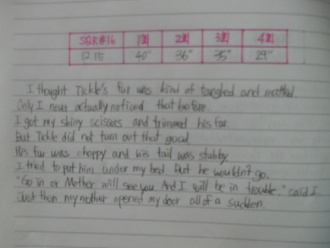 SQR#16 1회 2회 3회 4회
12.15 40" 36" 35" 29"
I thought Tickle's fur was kind of tangled and matted.
Only I never actually noticed that before.
I got my shiny scissors and trimmed his fur.
But Tickle did not turn out that good.
His fur was choppy and his tail was stubby.
I tried to put him under my bed but he wouldn't go.
"Go in or Mother will see you. And I will be in trouble." said I
Just then my mother opened my door all of a sudden.